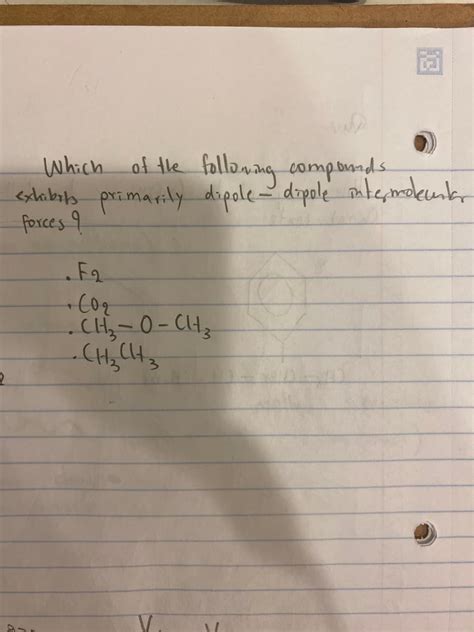 Which of the following compounds
exhibits primarily dipole - dipole intermolecular
forces?
. F2
. CO2
. CH3 - O - CH3
. CH3CH3